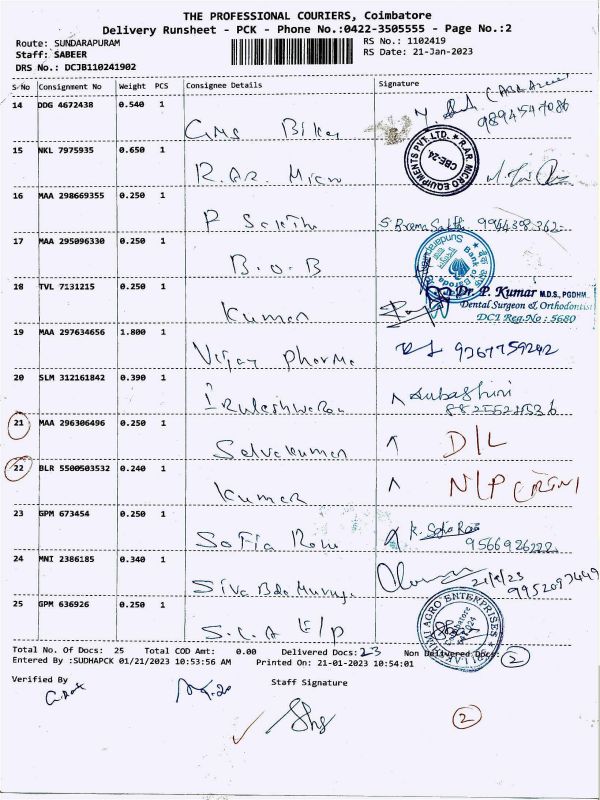 THE PROFESSIONAL COURIERS, Coimbatore
Delivery Runsheet - PCK - Phone No.:0422-3505555 - Page No.:2
Route: SUNDARAPURAM RS No.: 1102419
Staff: SABEER RS Date: 21-Jan-2023
DRS No.: DCJB110241902
S/No Consignment No Weight PCS Consignee Details Signature
14 DDG 4672438 0.540 1 GMS Bikes 9894547086
15 NKL 7975935 0.650 1 R.AR. Micro R.AR. MICRO EQUIPMENTS PVT. LTD. CBE-24
16 MAA 298669355 0.250 1 P Sakthi S. Prema Sakthi
17 MAA 295096330 0.250 1 B.O.B Bank of Baroda
18 TVL 7131215 0.250 1 Kumar Dr. P. Kumar M.D.S., PGDHM.
Dental Surgeon & Orthodontist
DCI Reg.No : 5680
19 MAA 297634656 1.800 1 Vijay Pharma 9367759242
20 SLM 312161842 0.390 1 Subashini
21 MAA 296306496 0.250 1 Selvakumar D/L
22 BLR 5500503532 0.240 1 Kumar N/P
23 GPM 673454 0.250 1 Sofia Rani K. Sofia Rani
9566926222
24 MNI 2386185 0.340 1
25 GPM 636926 0.250 1 S.L.A E/P AGRO ENTERPRISES
Total No. Of Docs: 25 Total COD Amt: 0.00 Delivered Docs: 23 Non Delivered Docs: 2
Entered By :SUDHAPCK 01/21/2023 10:53:56 AM Printed On: 21-01-2023 10:54:01
Verified By Staff Signature
2